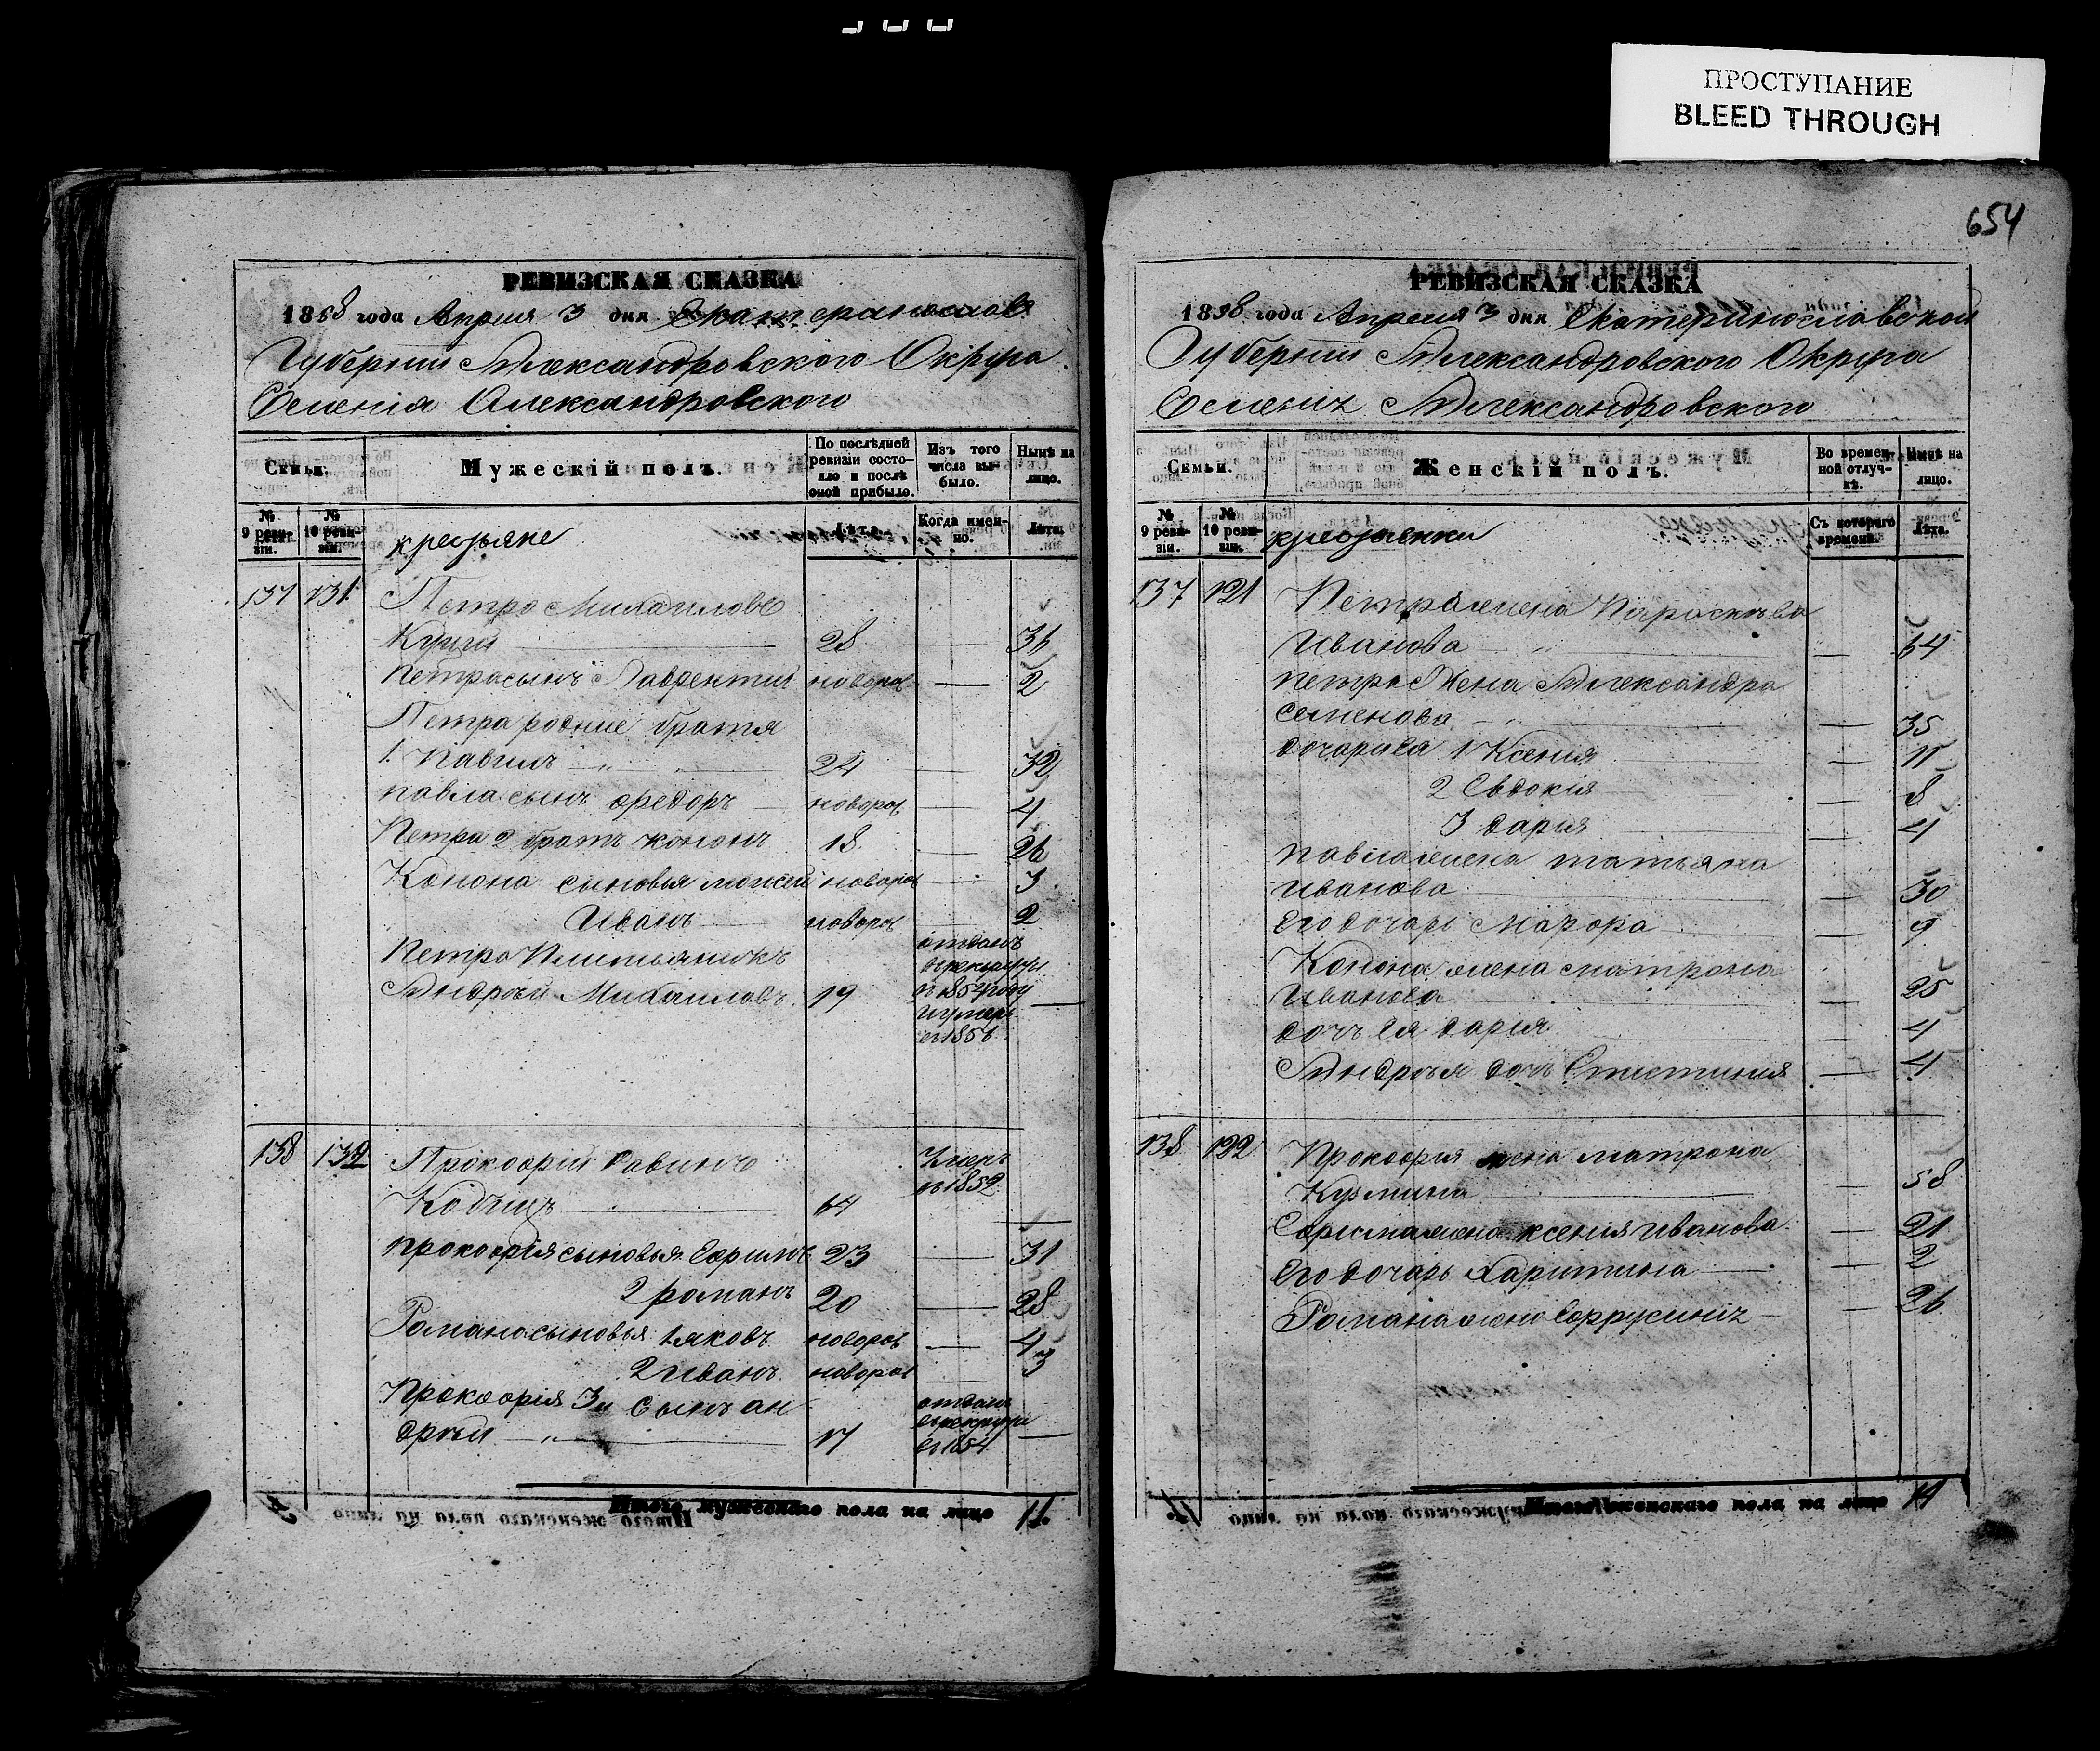 ПРОСТУПАНИЕ
BLEED THROUGH
654
РЕВИЗСКАЯ СКАЗКА
1858 года Апреля 3 дня Екатеринослав
Губернии Александровского Округа
Селенія Александровского
Семьи.
Мужескій полъ.
По послѣдней ревизіи состояло и послѣ оной прибыло.
Изъ того числа выбыло.
Нынѣ на лицо.
№ 9 ревизіи.
№ 10 ревизіи.
крестьяне
Лѣта.
Когда именно.
Лѣта.
137 131 Петро Михайловъ
28 — 36
Петра сынъ Лаврентий новорож — 2
Петра родние братя
1. Павилъ 24 — 32
павла сынъ Федоръ — новорож — 4
Петра 2 братъ кононъ 18 — 26
Конона сыновья моисей новорож — 3
Иванъ новорож — 2
Петро
Андрей Михаиловъ 19 отданъ
в рекруты
в 1854 году
и умеръ
въ 1856 —
138 132 Прокофий Савинъ Умеръ
въ 1852
64 —
прокофія сыновья Ефимъ 23 — 31
2 романъ 20 — 28
Романа сыновья 1 яковъ новорож — 4
2 Иванъ новорож — 3
Прокофія 3й Сынъ ан
дрей 17 отданъ
в рекруты
въ 1854 —
Итого мужескаго пола на лицо 11.
РЕВИЗСКАЯ СКАЗКА
1858 года Апреля 3 дня Екатеринославской
Губернии Александровского Округа
Селения Александровского
Семьи.
Женскій полъ.
Во временной отлучкѣ.
Нынѣ на лицо.
№ 9 ревизіи.
№ 10 ревизіи.
крестьянки
Съ котораго времени.
Лѣта.
137 121 Петра жена Параскѣва
Иванова — 64
петра Жена Александра
Семенова — 35
дочари ея 1 Ксения — 11
2 Евдокія — 8
3 дария — 4
павла жена татьяна
Иванова — 30
Его дочарь Марфа — 9
Конона жена матрона
Иванова — 25
дочъ Ея дарія — 4
Андрея дочъ — 4
138 122 Прокофия жена матрона
Кузмина 58
Ефима жена ксения иванова — 21
Его дочарь Харитина — 2
Романа жена Ефрусиния — 26
Итого женскаго пола на лицо 14